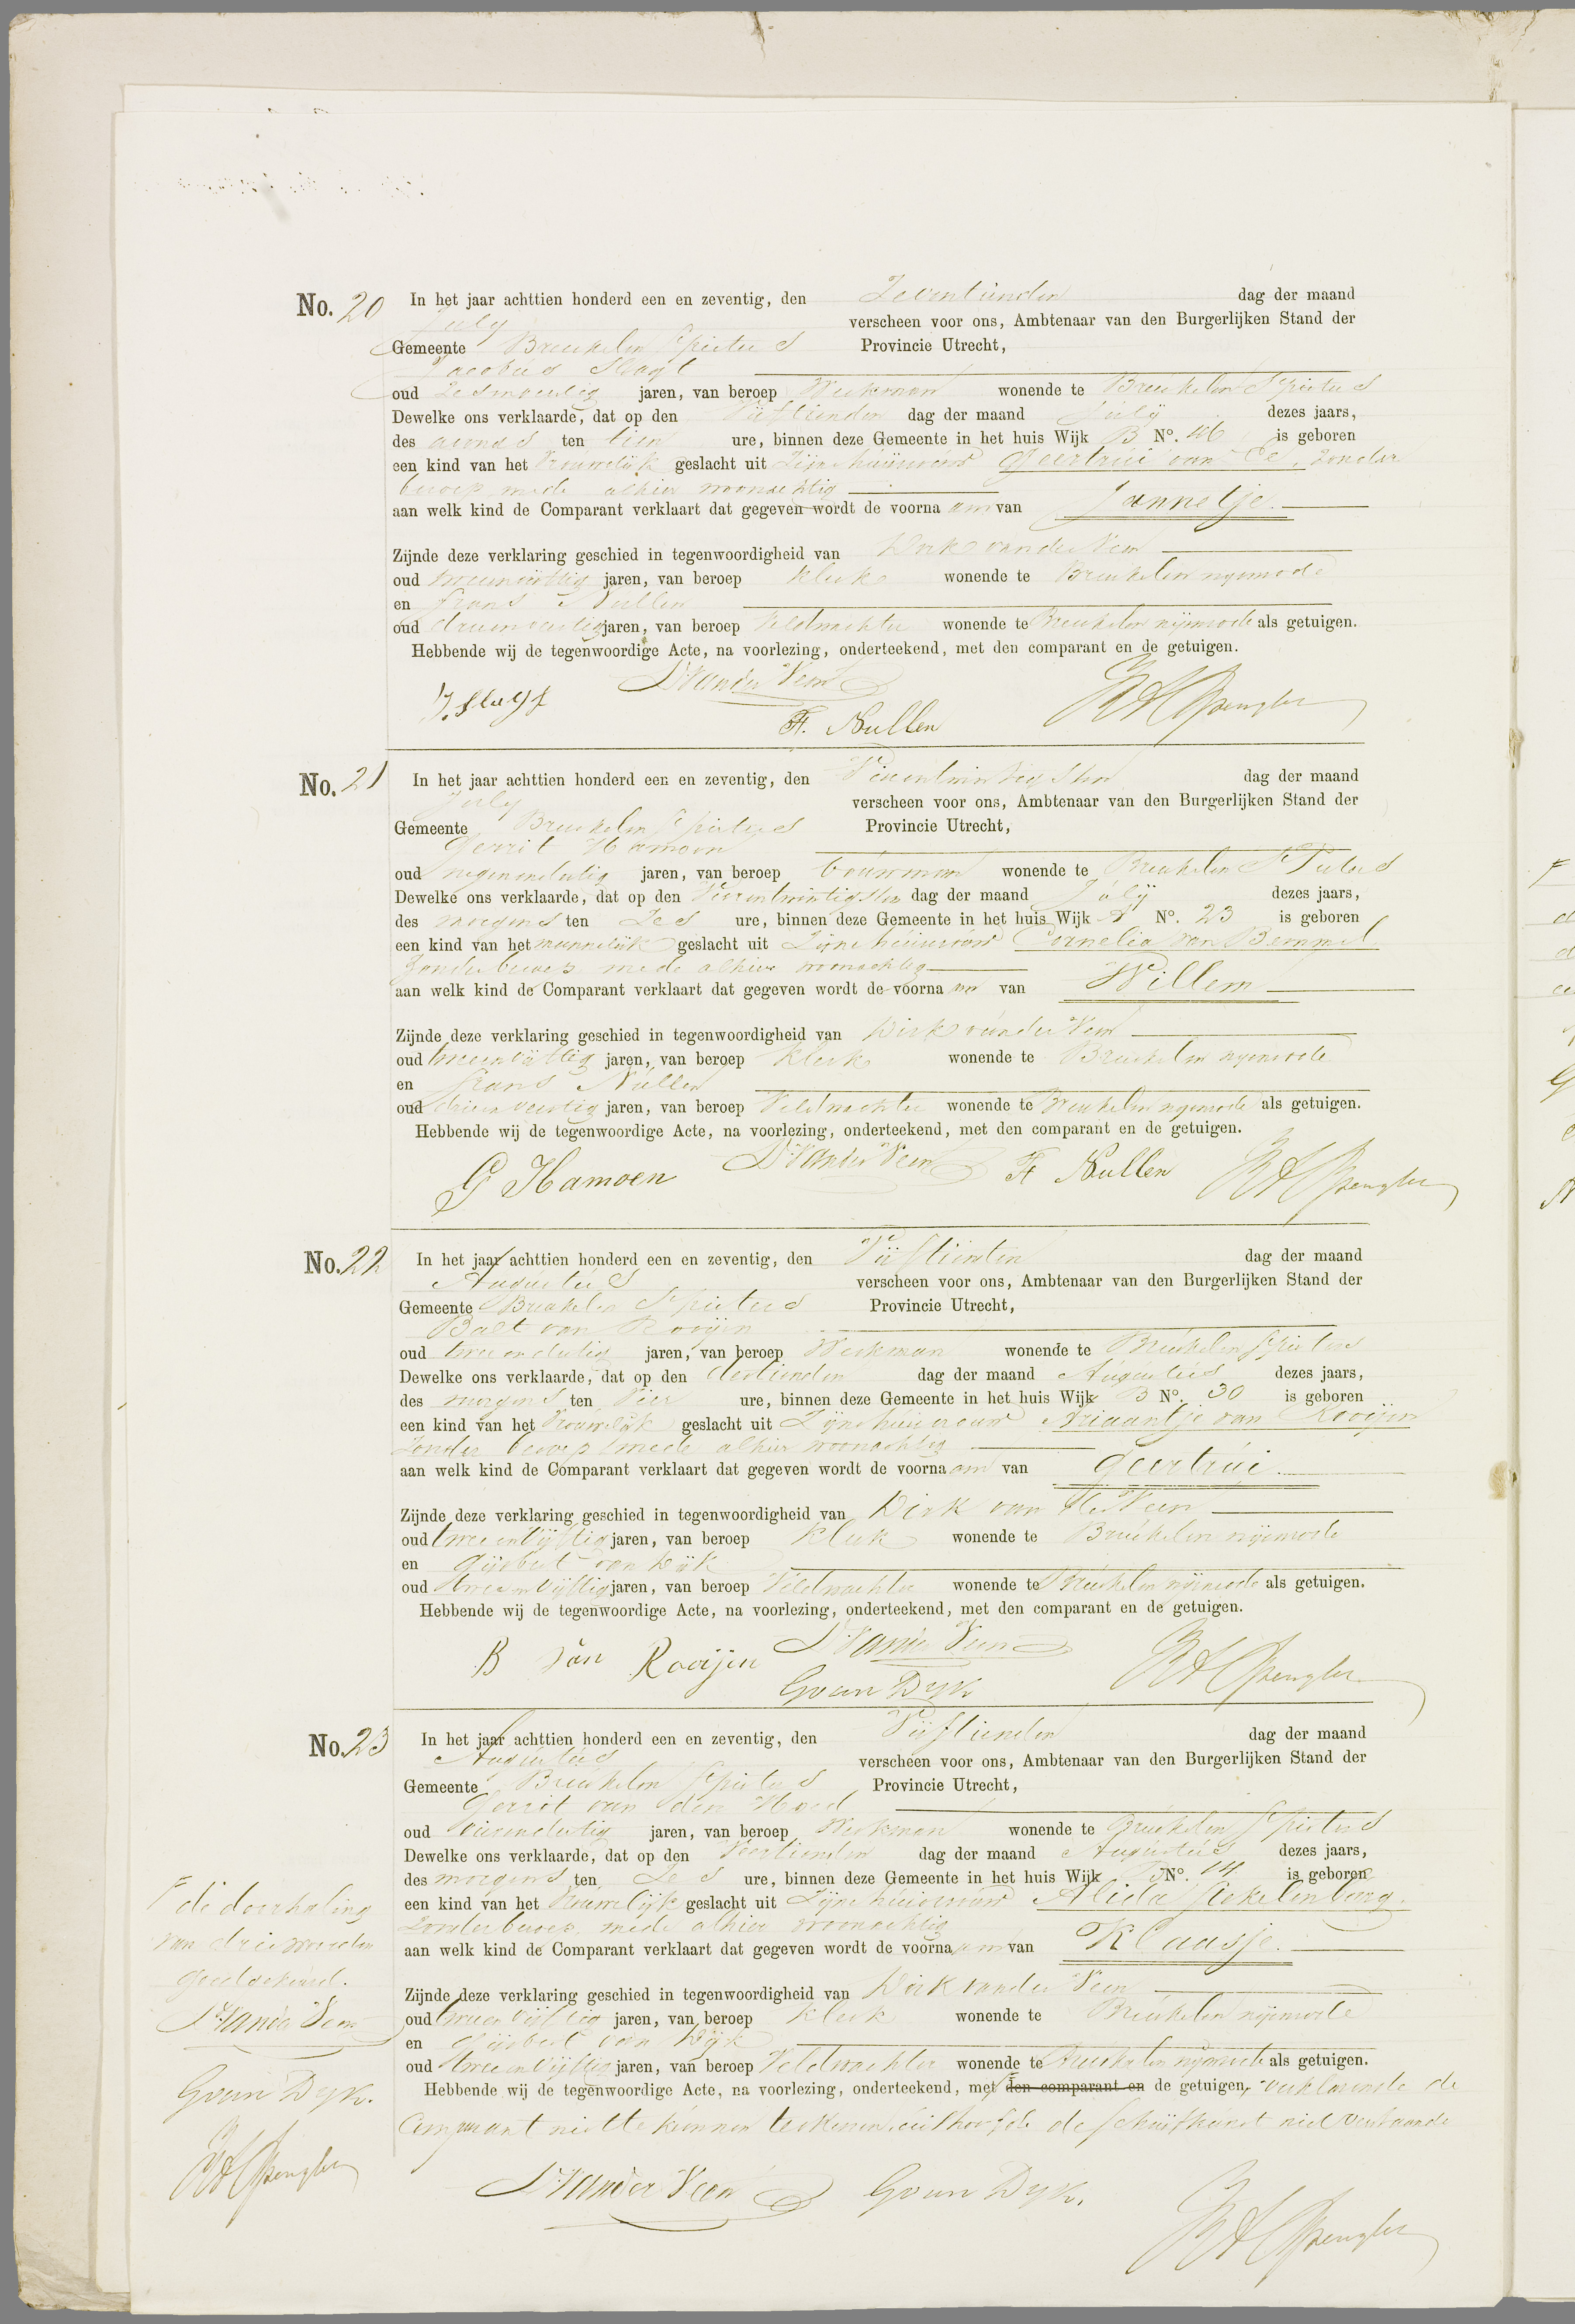 No. 20 In het jaar achttien honderd een en zeventig, den Zeventienden dag der maand
July verscheen voor ons, Ambtenaar van den Burgerlijken Stand der
Gemeente Breukelen St pieters Provincie Utrecht,
Jacobus Slagt
oud jaren, van beroep Werkman wonende te Breukelen St pieters
Dewelke ons verklaarde, dat op den Vijftienden dag der maand July dezes jaars,
des avonds ten tien ure, binnen deze Gemeente in het huis Wijk B No. 46 is geboren
een kind van het Vrouwelijk geslacht uit Zijne huisvrouw Geertrui van Ee, zonder
beroep mede alhier woonachtig
aan welk kind de Comparant verklaart dat gegeven wordt de voornaam van Jannetje.
Zijnde deze verklaring geschied in tegenwoordigheid van Dirk van der Veen
oud tweeenvijftig jaren, van beroep Klerk wonende te Breukelen nijenrode
en frans Nullen
oud drieenveertig jaren, van beroep Veldwachter wonende te Breukelen nijenrode als getuigen.
Hebbende wij de tegenwoordige Acte, na voorlezing, onderteekend, met den comparant en de getuigen.
J. Slagt D. van der Veen
F. Nullen
No. 21 In het jaar achttien honderd een en zeventig, den Vierentwintigsten dag der maand
July verscheen voor ons, Ambtenaar van den Burgerlijken Stand der
Gemeente Breukelen St pieters Provincie Utrecht,
Gerrit Hamoen
oud negenendertig jaren, van beroep bouwman wonende te Breukelen St Pieters
Dewelke ons verklaarde, dat op den Vierentwintigsten dag der maand July dezes jaars,
des morgens ten Zes ure, binnen deze Gemeente in het huis Wijk No. 23 is geboren
een kind van het mannelijk geslacht uit Zijne huisvrouw Cornelia van Bemmel
Zonder beroep mede alhier woonachtig
aan welk kind de Comparant verklaart dat gegeven wordt de voornaam van Willem
Zijnde deze verklaring geschied in tegenwoordigheid van Dirk van der Veen
oud tweeenvijftig jaren, van beroep Klerk wonende te Breukelen nijenrode
en frans Nullen
oud drieenveertig jaren, van beroep Veldwachter wonende te Breukelen nijenrode als getuigen.
Hebbende wij de tegenwoordige Acte, na voorlezing, onderteekend, met den comparant en de getuigen.
G Hamoen D. van der Veen F Nullen
No. 22 In het jaar achttien honderd een en zeventig, den Vijftienden dag der maand
Augustus verscheen voor ons, Ambtenaar van den Burgerlijken Stand der
Gemeente Breukelen St pieters Provincie Utrecht,
Balt van Rooijen
oud tweeendertig jaren, van beroep Werkman wonende te Breukelen St pieters
Dewelke ons verklaarde, dat op den dertienden dag der maand Augustus dezes jaars,
des morgens ten Vier ure, binnen deze Gemeente in het huis Wijk B No. 30 is geboren
een kind van het Vrouwelijk geslacht uit Zijne huisvrouw Ariaantje van Rooijen
Zonder beroep mede alhier woonachtig
aan welk kind de Comparant verklaart dat gegeven wordt de voornaam van Geertrui.
Zijnde deze verklaring geschied in tegenwoordigheid van Dirk van der Veen
oud tweeenvijftig jaren, van beroep Klerk wonende te Breukelen nijenrode
en Gijsbert van Dijk
oud tweeenvijftig jaren, van beroep Veldwachter wonende te Breukelen nijenrode als getuigen.
Hebbende wij de tegenwoordige Acte, na voorlezing, onderteekend, met den comparant en de getuigen.
B van Rooijen D. van der Veen
G van Dyk
No. 23 In het jaar achttien honderd een en zeventig, den Vijftienden dag der maand
Augustus verscheen voor ons, Ambtenaar van den Burgerlijken Stand der
Gemeente Breukelen St pieters Provincie Utrecht,
Gerrit van den Hoed
oud Vierendertig jaren, van beroep Werkman wonende te Breukelen St pieters
Dewelke ons verklaarde, dat op den Veertienden dag der maand Augustus dezes jaars,
des morgens ten Zes ure, binnen deze Gemeente in het huis Wijk B No. 14 is geboren
een kind van het Vrouwelijk geslacht uit Zijne huisvrouw Alida Stekelenburg.
Zonder beroep, mede alhier woonachtig
aan welk kind de Comparant verklaart dat gegeven wordt de voornaam van Klaasje.
Zijnde deze verklaring geschied in tegenwoordigheid van Dirk van der Veen
oud tweeenvijftig jaren, van beroep Klerk wonende te Breukelen nijenrode
en Gijsbert van Dijk
oud tweeenvijftig jaren, van beroep Veldwachter wonende te Breukelen nijenrode als getuigen.
Hebbende wij de tegenwoordige Acte, na voorlezing, onderteekend, met den comparant en de getuigen, verklarende de
Comparant niet te kunnen teekenen, uit hoofde de schrijfkunst niet verstaande
D. van der Veen G van Dyk.
de doorhaling
van drie woorden
goedgekeurd.
D. van der Veen
G van Dyk.